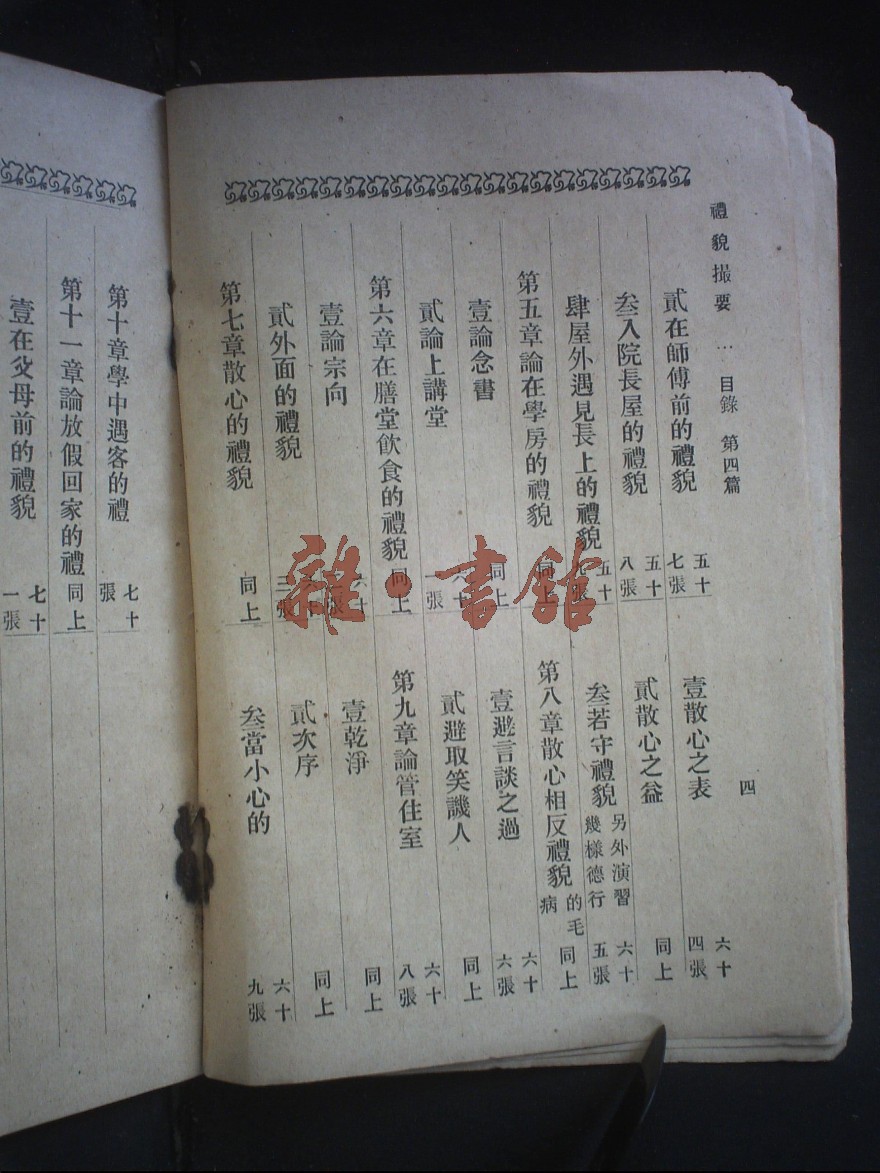 禮貌撮要 … 目錄 第四篇 四
貳在師傅前的禮貌 五十七張
叁入院長屋的禮貌 五十八張
肆屋外遇見長上的禮貌 五十張
第五章論在學房的禮貌 同上
壹論念書 同上
貳論上講堂 六十一張
第六章在膳堂飲食的禮貌 同上
壹論宗向 六十張
貳外面的禮貌 六十三張
第七章散心的禮貌 同上
壹散心之表 六十四張
貳散心之益 同上
叁若守禮貌 另外演習幾樣德行 六十五張
第八章散心相反禮貌的毛病 同上
壹避言談之過 六十六張
貳避取笑譏人 同上
第九章論管住室 六十八張
壹乾淨 同上
貳次序 同上
叁當小心的 六十九張
第十章學中遇客的禮 七十張
第十一章論放假回家的禮 同上
壹在父母前的禮貌 七十一張
雜·書館